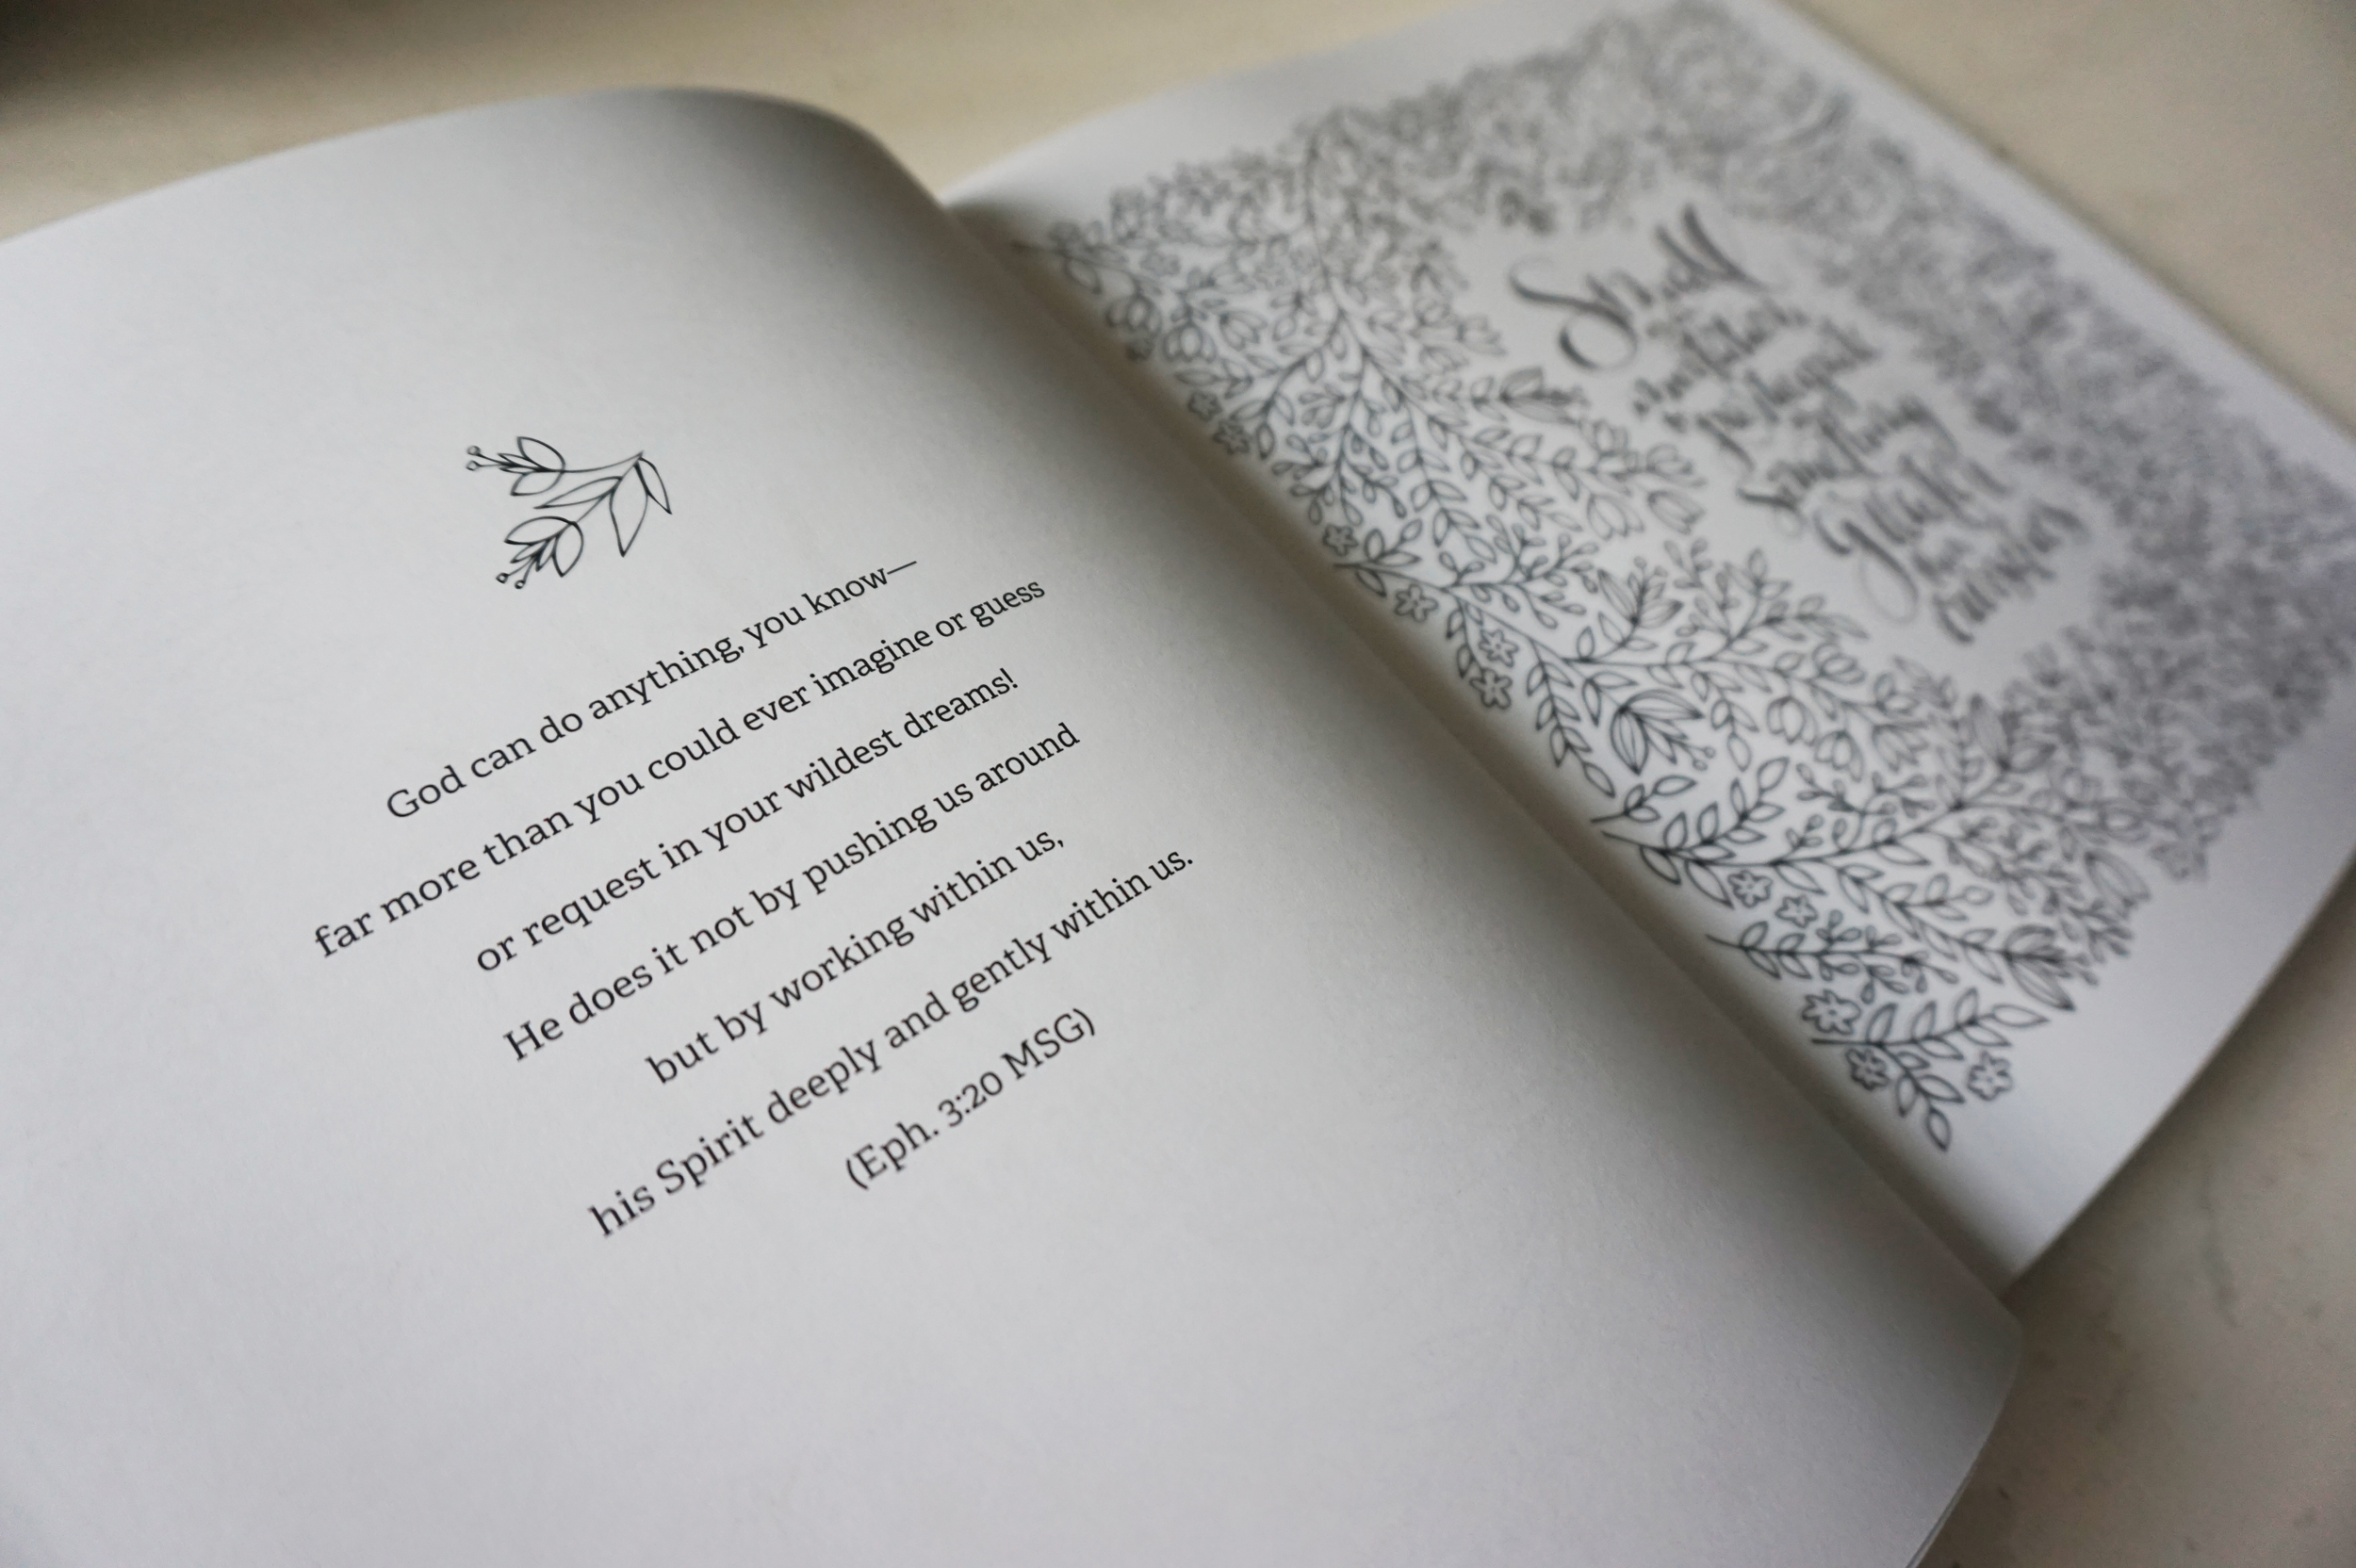 God can do anything, you know—
far more than you could ever imagine or guess
or request in your wildest dreams!
He does it not by pushing us around
but by working within us,
his Spirit deeply and gently within us.
(Eph. 3:20 MSG)
Small
something
greater